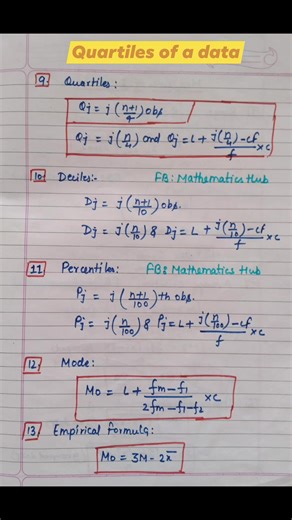 Quartiles of a data
9 Quartiles:
Qj = j(n+1/4) obs
Qj = j(n/4) and Qj = L + j(n/4) - cf / f × c
10 Deciles:- FB: Mathematics Hub
Dj = j(n+1/10) obs.
Dj = j(n/10) & Dj = L + j(n/10) - cf / f × c
11 Percentiles: FB: Mathematics Hub
Pj = j(n+1/100)th obs.
Pj = j(n/100) & Pj = L + j(n/100) - cf / f × c
12 Mode:
Mo = L + fm - f1 / 2fm - f1 - f2 × c
13 Empirical formula:
Mo = 3M - 2x̄